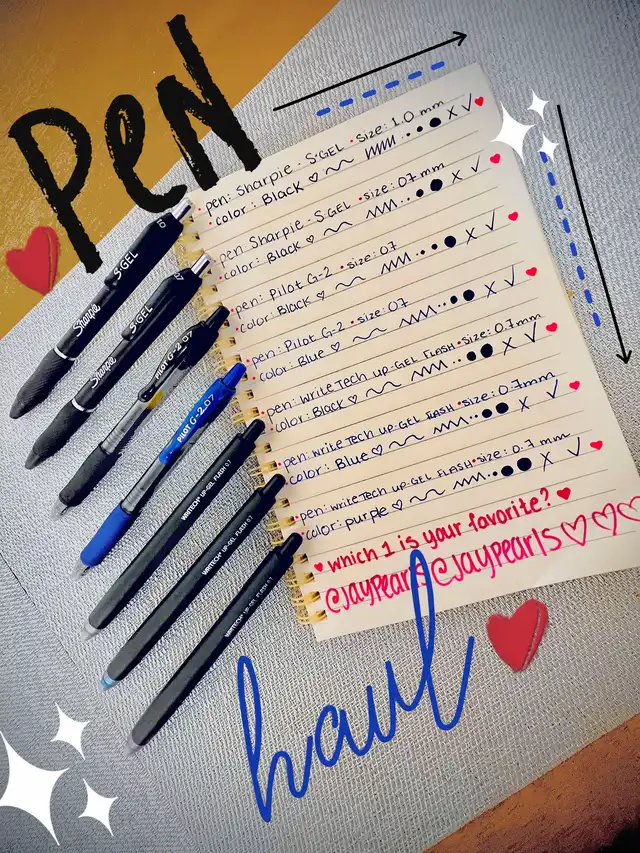 Pen
pen: Sharpie - S·GEL • size: 1.0 mm
• color: Black
pen: Sharpie - S·GEL • size: 07 mm
color: Black
pen: Pilot G-2 • size: 07
color: Black
pen: Pilot G-2 • size: 07
color: Blue
pen: writeTech up-GEL FLASH • size: 0.7mm
color: Black
pen: writeTech up-GEL FLASH • size: 0.7mm
color: Blue
pen: writeTech up-GEL FLASH • size: 0.7 mm
color: purple
which 1 is your favorite?
@JayPearls @JayPearls
Sharpie S·GEL 1.0
Sharpie S·GEL 0.7
PILOT G-2 07
PILOT G-2 07
WRITECH® UP-GEL FLASH 0.7
WRITECH® UP-GEL FLASH 0.7
WRITECH® UP-GEL FLASH 0.7
haul